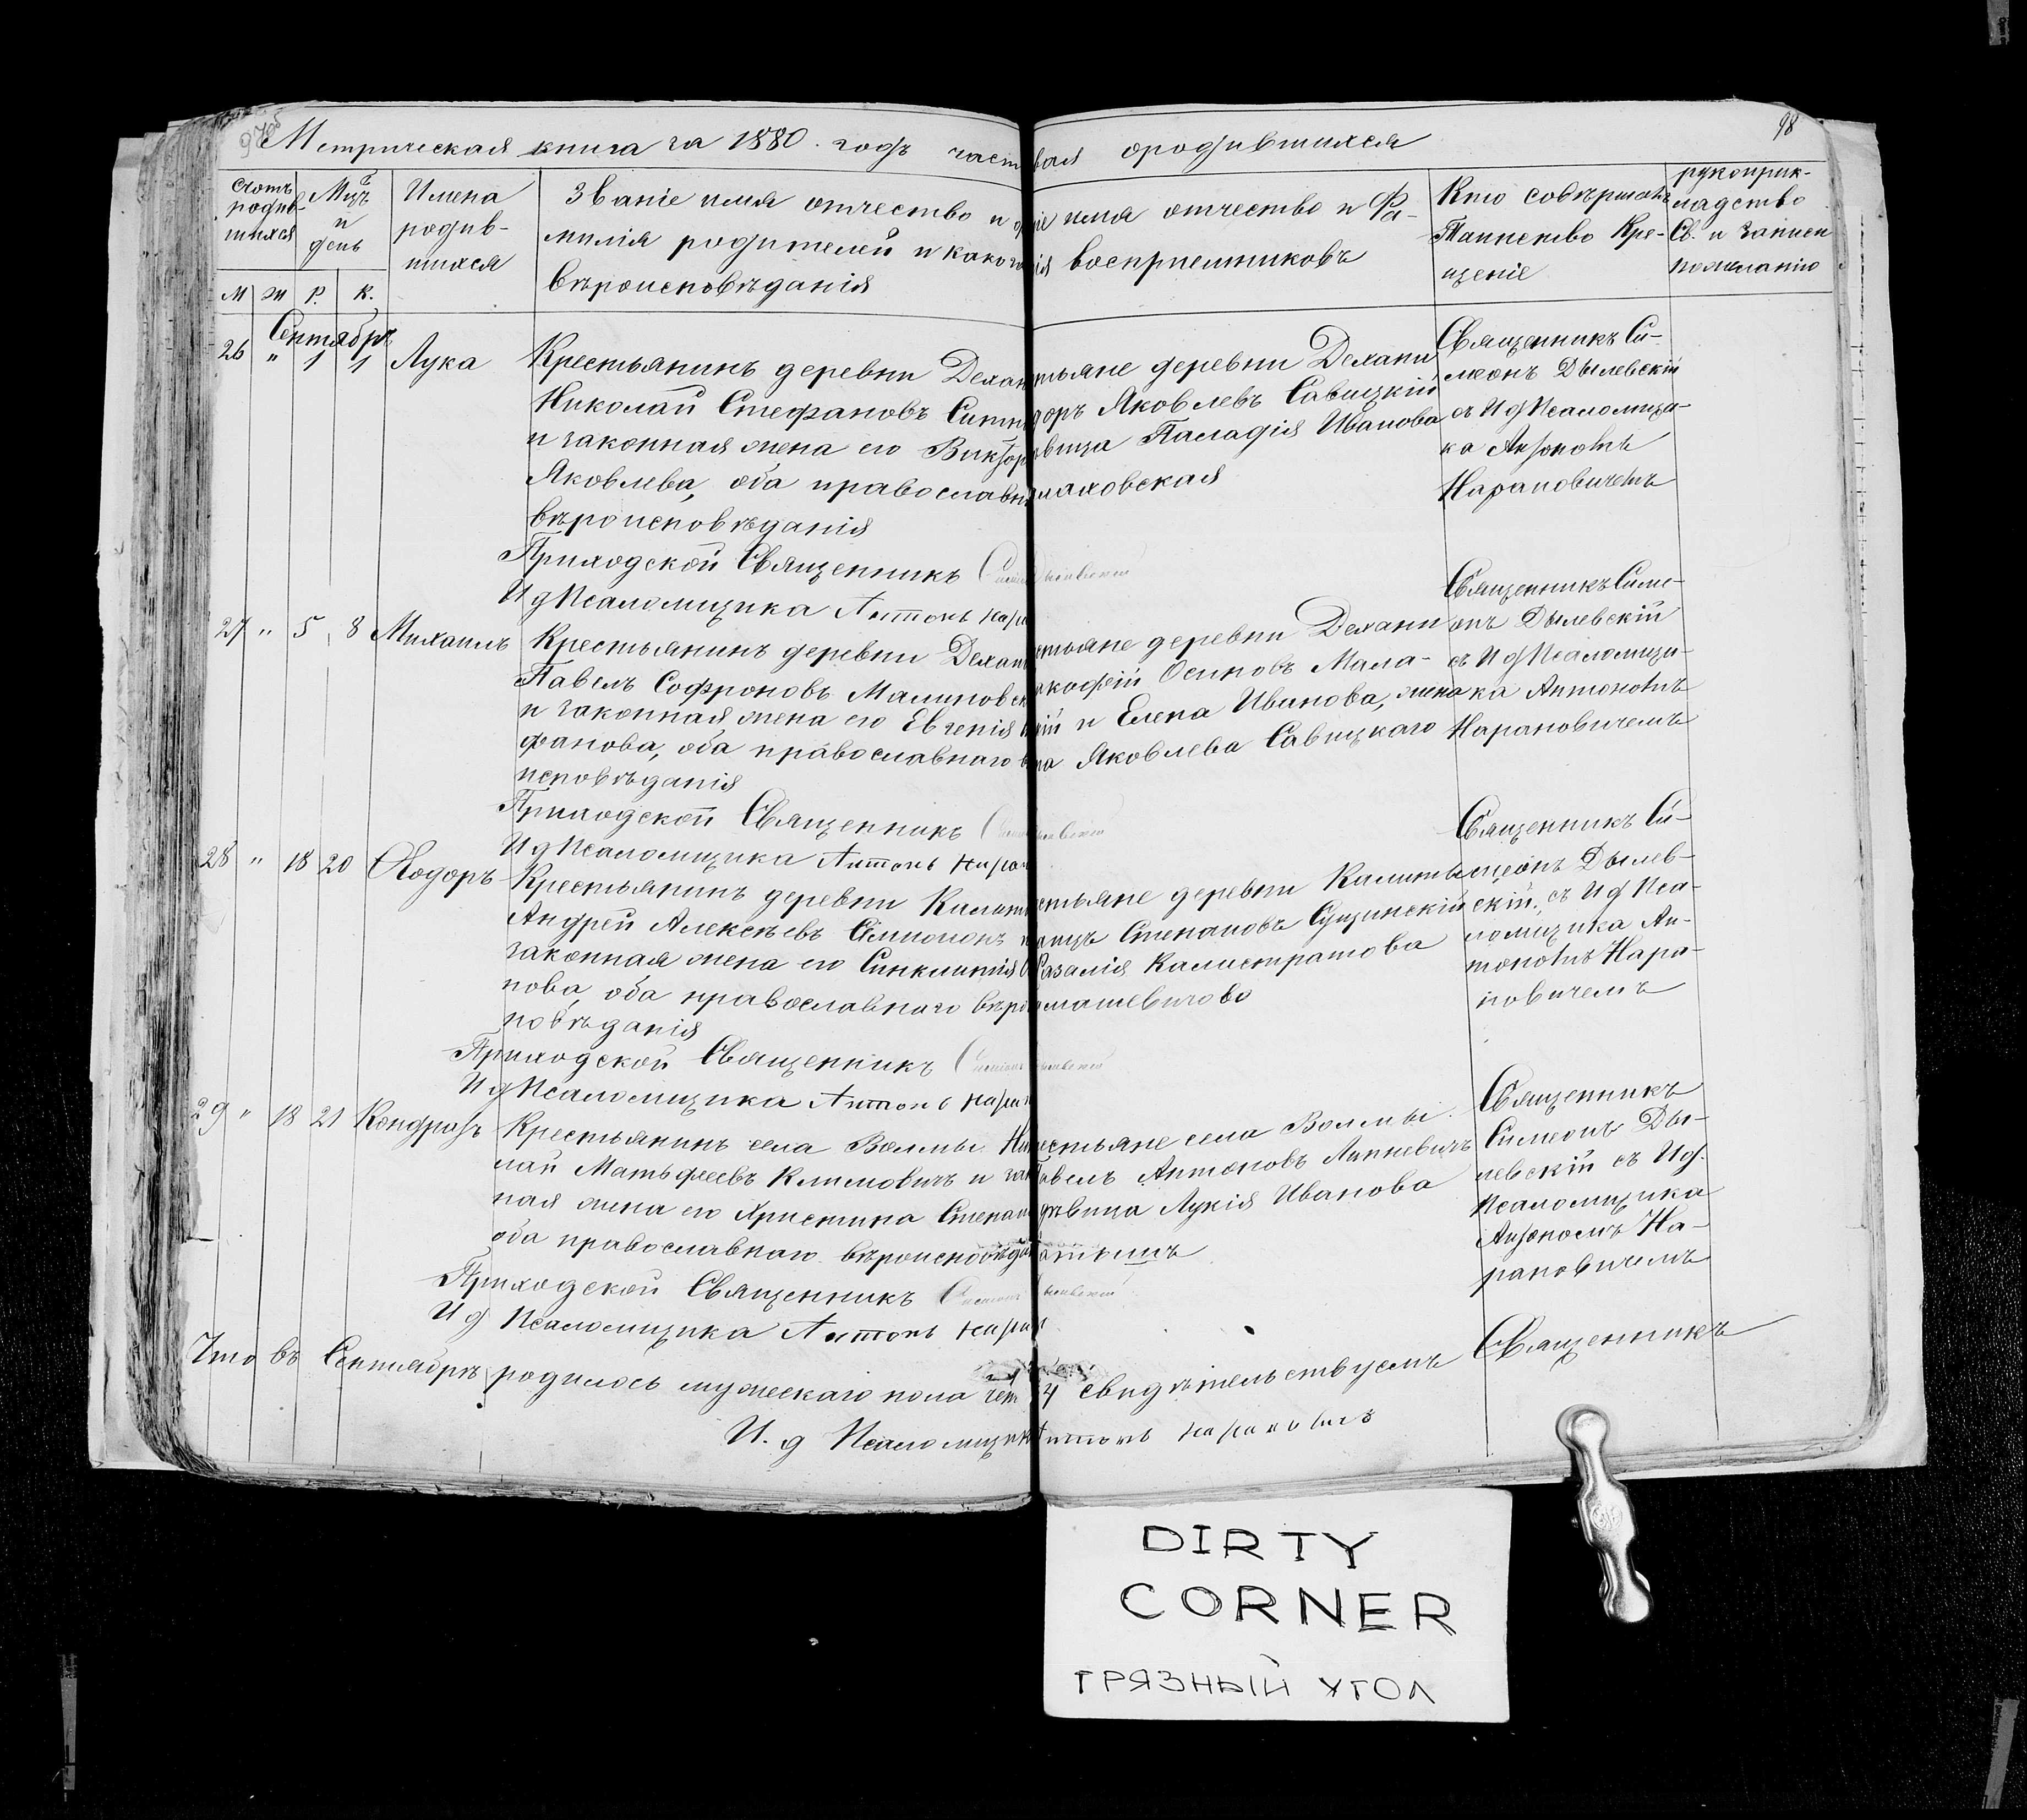 98
Метрическая книга за 1880. годъ част
вая ородившихся
счотъ родив-шихся
Мцъ и день
Имена родив-шихся
Званіе имя отчество и ф
милія родителей и каког
вѣроисповѣданія
іе имя отчество и Фа-
ія воспріемниковъ
Кто совѣршалъ
Таинство Кре-
щеніе
рукоприк-
ладство
Св. и записи
пожеланію
М ж Р. К.
Сентябрь
26 " 1 1 Лука
Крестьянинъ деревни Дехан
Николай Стефановъ
и законная жена его Виктор
Яковлева, оба православн
вѣроисповѣданія
Приходской Священникъ
И д Псаломщика Антонъ Нара
тьяне деревни Дехани
доръ Яковлевъ Савицкій
вица Паладія Иванова
маховская
Священникъ Си-
меонъ Дылевскій
съ И д Псаломщи-
ка Антономъ
Нарановичемъ
27 " 5 8 Михаилъ
Крестьянинъ деревни Дехан
Павелъ Софроновъ Малиновск
и законная жена его Евгенія
фанова, оба православнаго в
исповѣданія
Приходской Священникъ
И д Псаломщика Антонъ Наран
стьяне деревни Дехани
кофій Осиповъ Мала-
кій и Елена Иванова, жена
на Яковлева Савицкаго
Священникъ Симе-
онъ Дылевскій
съ И д Псаломщи-
ка Антономъ
Нарановичемъ
28 " 18 20 Ѳеодоръ
Крестьянинъ деревни
Андрей Алексѣевъ
законная жена его Синклитія
нова, оба православнаго вѣро
повѣданія
Приходской Священникъ
И д Псаломщика Антонъ Наран
стьяне деревни
Степановъ Сущинскій
Разалія Калистратова
машевичово
Священникъ Си-
меонъ Дылев-
скій, съ И д Пса-
ломщика Ан-
тономъ Нара-
новичемъ
29 " 18 21 Кондратъ
Крестьянинъ села Волмы Ни
лай Матьфеевъ Климовичъ и зак
ная жена его Христина Степан
оба православнаго вѣроисповѣдан
Приходской Священникъ
И д Псаломщика Антонъ Наран
естьяне села Волмы
Павелъ Антоновъ Липневичъ
дѣвица Лукія Иванова
Священникъ
Симеонъ Ды-
левскій съ И д.
Псаломщика
Антономъ На-
рановичемъ
Что въ Сентябрѣ родилось мужескаго пола чет
4 свидѣтельствуемъ Священникъ
И. д Псаломщик
Антонъ Нарановичъ
DIRTY
CORNER
ГРЯЗНЫЙ УГОЛ